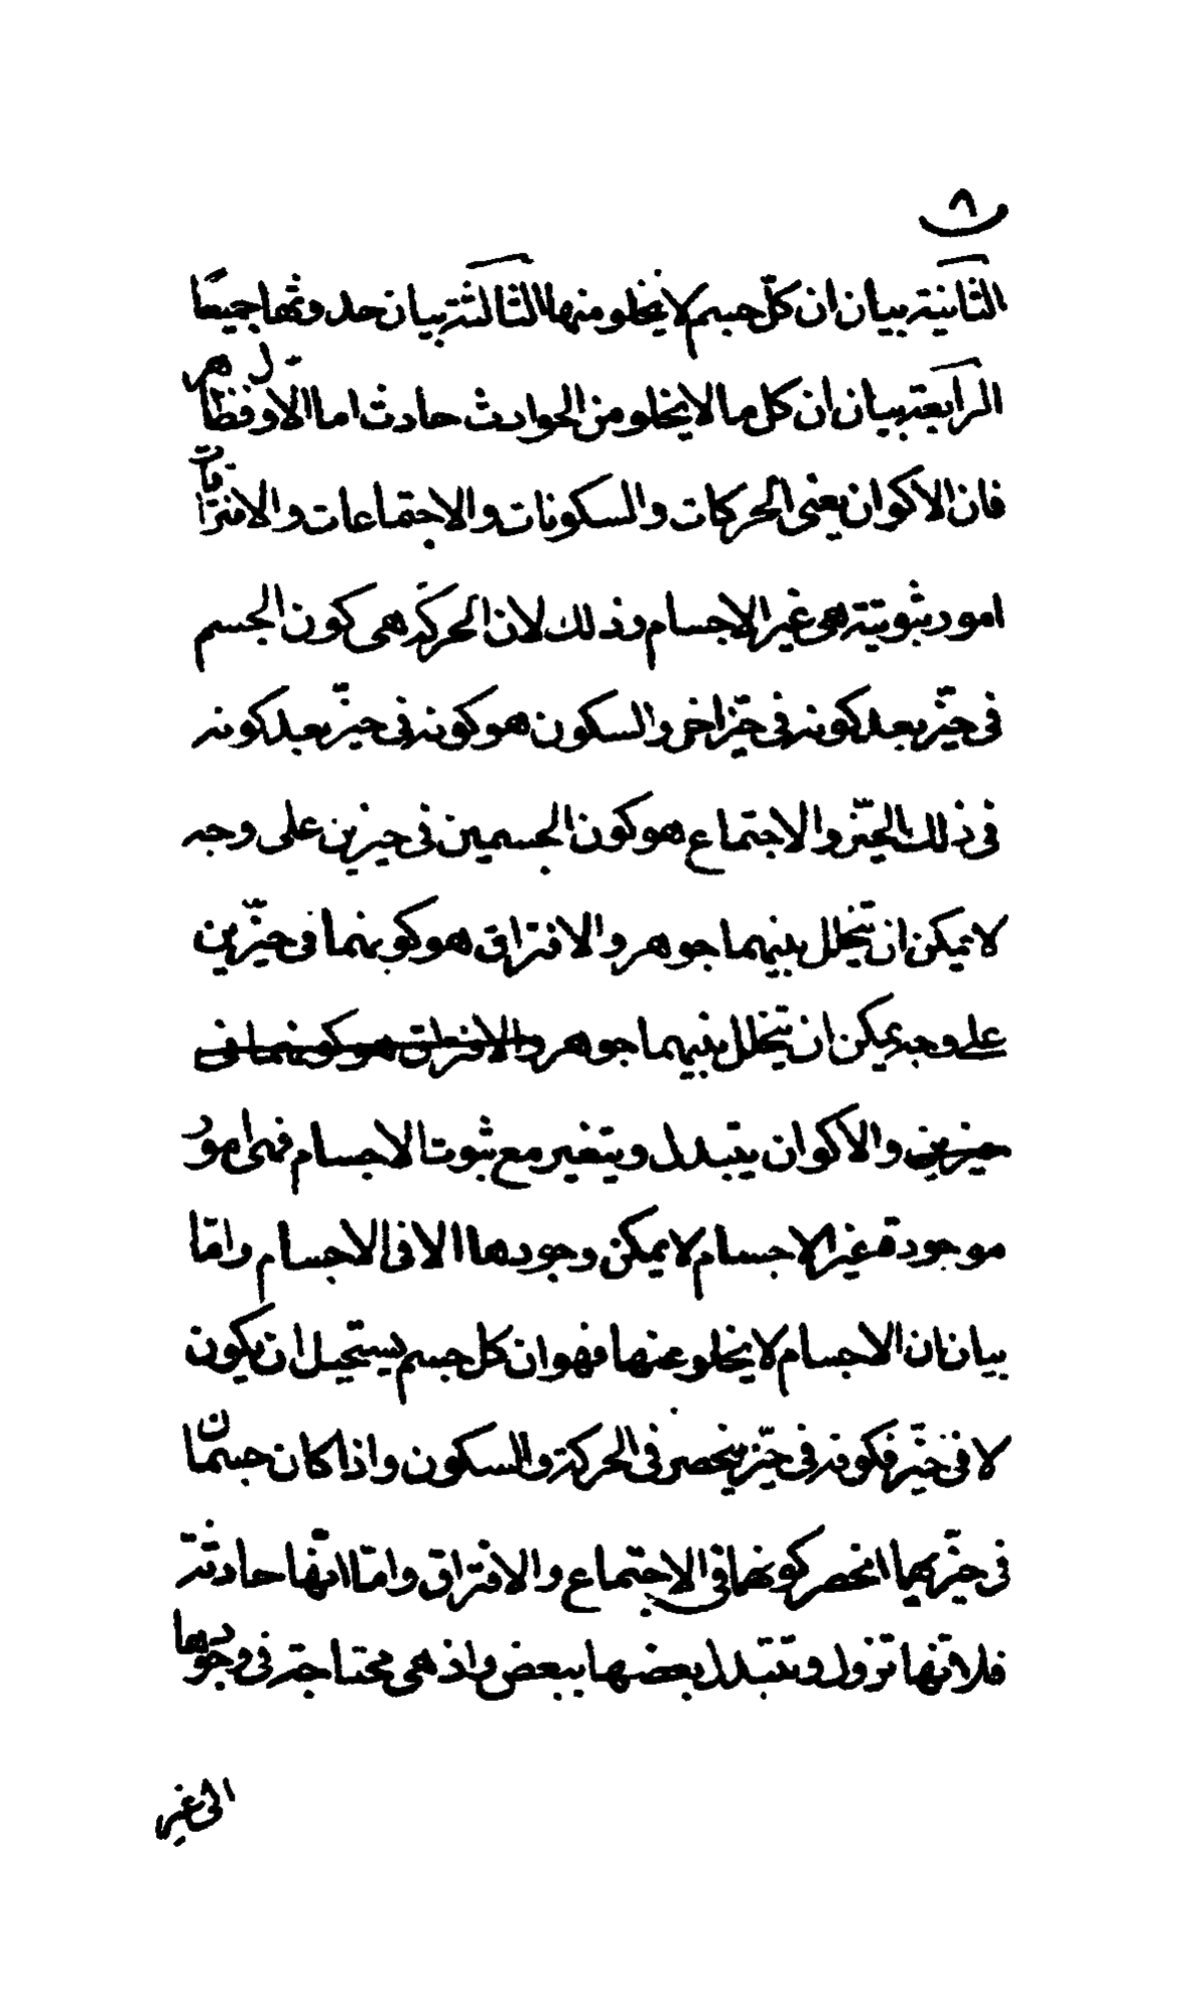 ٨
الثانية بيان ان كلّ جسم لا يخلو منها الثالثة بيان حدوثها جميعًا
الرابعة بيان ان كل ما لا يخلو من الحوادث حادث اما الاولى فظاهر
فان الاكوان يعنى الحركات والسكونات والاجتماعات والافتراقات
امور ثبوتية هى غير الاجسام وذلك لان الحركة هى كون الجسم
فى حيّز بعد كونه فى حيّز اخر والسكون هو كونه فى حيّز بعد كونه
فى ذلك الحيّز والاجتماع هو كون الجسمين فى حيزين على وجه
لا يمكن ان يتخلل بينهما جوهر والافتراق هو كونهما فى حيّزين
على وجه يمكن ان يتخلل بينهما جوهر والافتراق هو كونهما فى
حيزين والاكوان يتبدل ويتغير مع ثبوت الاجسام فهى امور
موجودة غير الاجسام لا يمكن وجودها الا فى الاجسام وامّا
بيان ان الاجسام لا يخلو عنها فهو ان كل جسم يستحيل ان يكون
لا فى حيّز فكونه فى حيّز ينحصر فى الحركة والسكون واذا كان جسمان
فى حيّزيهما انحصر كونهما فى الاجتماع والافتراق وامّا انّها حادثة
فلانّها تزول وتتبدل بعضها ببعض واذ هى محتاجة فى وجودها
الى غير